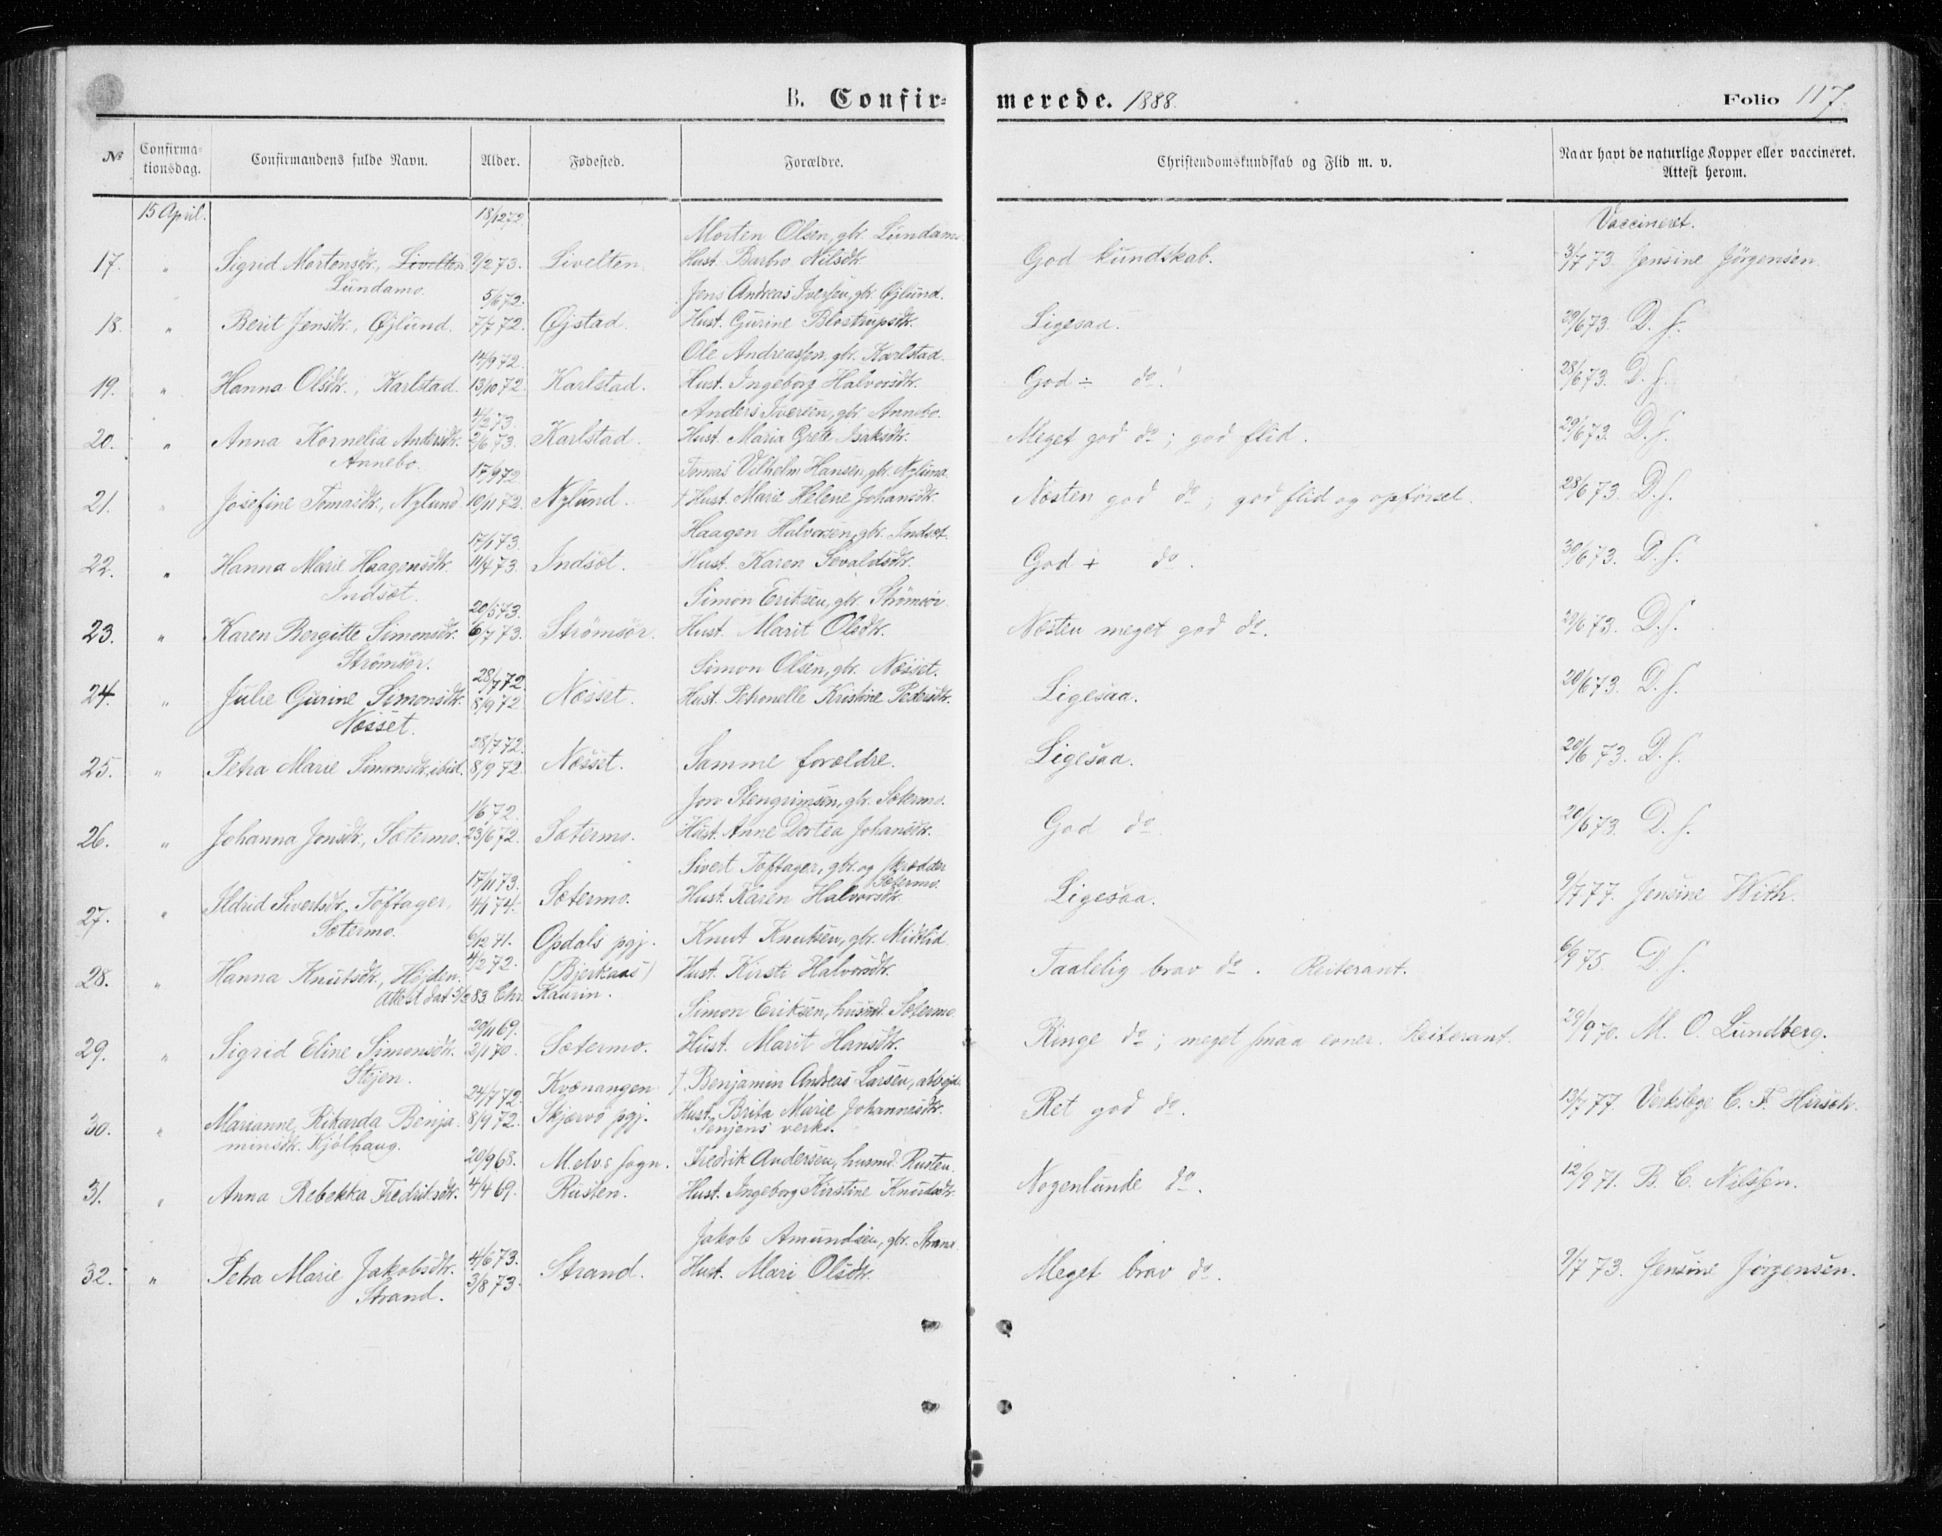 B. Confirmerede. 1888. Folio 117.
№ Confirmationsdag. Confirmandens fulde Navn. Alder. Fødested. Forældre. Christendomskundskab og Flid m. v. Naar havt de naturlige Kopper eller vaccineret. Attest herom.
15 April. 18/12 72. Morten Olsen, gbr. Lundamo. Vaccineret.
17. " Sigrid Mortensdtr., Livelten 9/2 73. Livelten. Hust. Barbo Nilsdtr. God kundskab. 3/7 73. Jensine Jørgensen.
Lundamo. 5/6 72. Jens Andreas Iversen, gbr. Øjlund.
18. " Berit Jensdtr., Øjlund. 7/7 72. Øjstad. Hust. Gurine Blostrupsdtr. Ligesaa. 29/6 73. D. s.
14/9 72. Ole Andreassen, gbr. Karlstad.
19. " Hanna Olsdtr., Karlstad. 13/10 72. Karlstad. Hust. Ingeborg Halvorsdtr. God ÷ do. 28/6 73. D. s.
4/3 73. Anders Iversen, gbr. Annebo.
20. " Anna Kornelia Andersdtr. 2/6 73. Karlstad. Hust. Maria Grete Isaksdtr. Meget god do; god flid. 29/6 73. D. s.
Annebo. 17/9 72. Tomas Vilhelm Hansen, gbr. Nylund.
21. " Josefine Tomasdtr., Nylund 10/11 72. Nylund. † Hust. Marie Helene Johansdtr. Næsten god do; god flid og opførsel. 28/6 73. D. s.
17/1 73. Haagen Halvorsen, gbr. Indset.
22. " Hanna Marie Haagensdtr. 11/4 73. Indset. Hust. Karen Sevaldsdtr. God + do. 30/6 73. D. s.
Indset. 20/5 73. Simon Eriksen, gbr. Strömsör
23. " Karen Bergitte Simonsdtr. 6/7 73. Strömsör. Hust. Marit Olsdtr. Næsten meget god do. 29/6 73. D. s.
Strömsör. 28/7 72. Simon Olsen, gbr. Næsset.
24. " Julie Gurine Simonsdtr. 8/9 72. Næsset. Hust. Petronelle Kristine Pedersdtr. Ligesaa. 20/6 73. D. s.
Næsset. 28/7 72.
25. " Petra Marie Simonsdtr. ibid. 8/9 72. Næsset. Samme forældre. Ligesaa. 20/6 73. D. s.
1/6 72. Jon Stengrimsen, gbr. Sætermo.
26. " Johanna Jonsdtr., Sætermo. 23/6 72. Sætermo. Hust. Anne Dortea Johansdtr. God do. 20/6 73. D. s.
17/11 73. Sivert Toftager, gbr. og skrædder Sætermo.
27. " Ildrid Sivertsdtr. Toftager, 4/1 74. Sætermo. Hust. Karen Halvorsdtr. Ligesaa. 9/7 77. Jensine With.
Sætermo. 6/12 71. Opdals pgj. Knut Knutsen, gbr. Midtlid.
28. " Hanna Knutsdtr., Højdin. 4/2 72. (Bjerkaas) Hust. Kirsti Halvorsdtr. Taalelig brav do. Reiterant. 6/9 75. D. s.
Attest dat. 5/2 83 Chr. Kaurin. Simon Eriksen, husmd. Sætermo.
29/11 69.
29. " Sigrid Eline Simonsdtr. 2/1 70. Sætermo. Hust. Marit Hansdtr. Ringe do; meget smaa evner. Reiterant. 29/9 70. M. O. Lundberg.
Stejen. 24/7 72. Kvænangen † Benjamin Anders Larsen, arbejd.
30. " Marianne Rikarda Benja- 8/9 72. Skjærvø pgj. Hust. Brita Marie Johannesdtr. Ret god do. 13/7 77. Verkslæge C. F. Hirsch.
minsdtr. Kjölhaug. Senjens verke.
20/9 68. M.elvs sogn. Fredrik Andersen, husmd. Rusten.
31. " Anna Rebekka Fredriksdtr. 4/4 69. Rusten. Hust. Ingeborg Kirstine Knutsdtr. Nogenlunde do. 12/9 71. B. C. Nilssen.
Jakob Amundsen, gbr. Strand.
32. " Petra Marie Jakobsdtr. 4/6 73. Strand. Hust. Mari Olsdtr. Meget brav do. 2/7 73. Jensine Jørgensen.
Strand. 3/8 73.